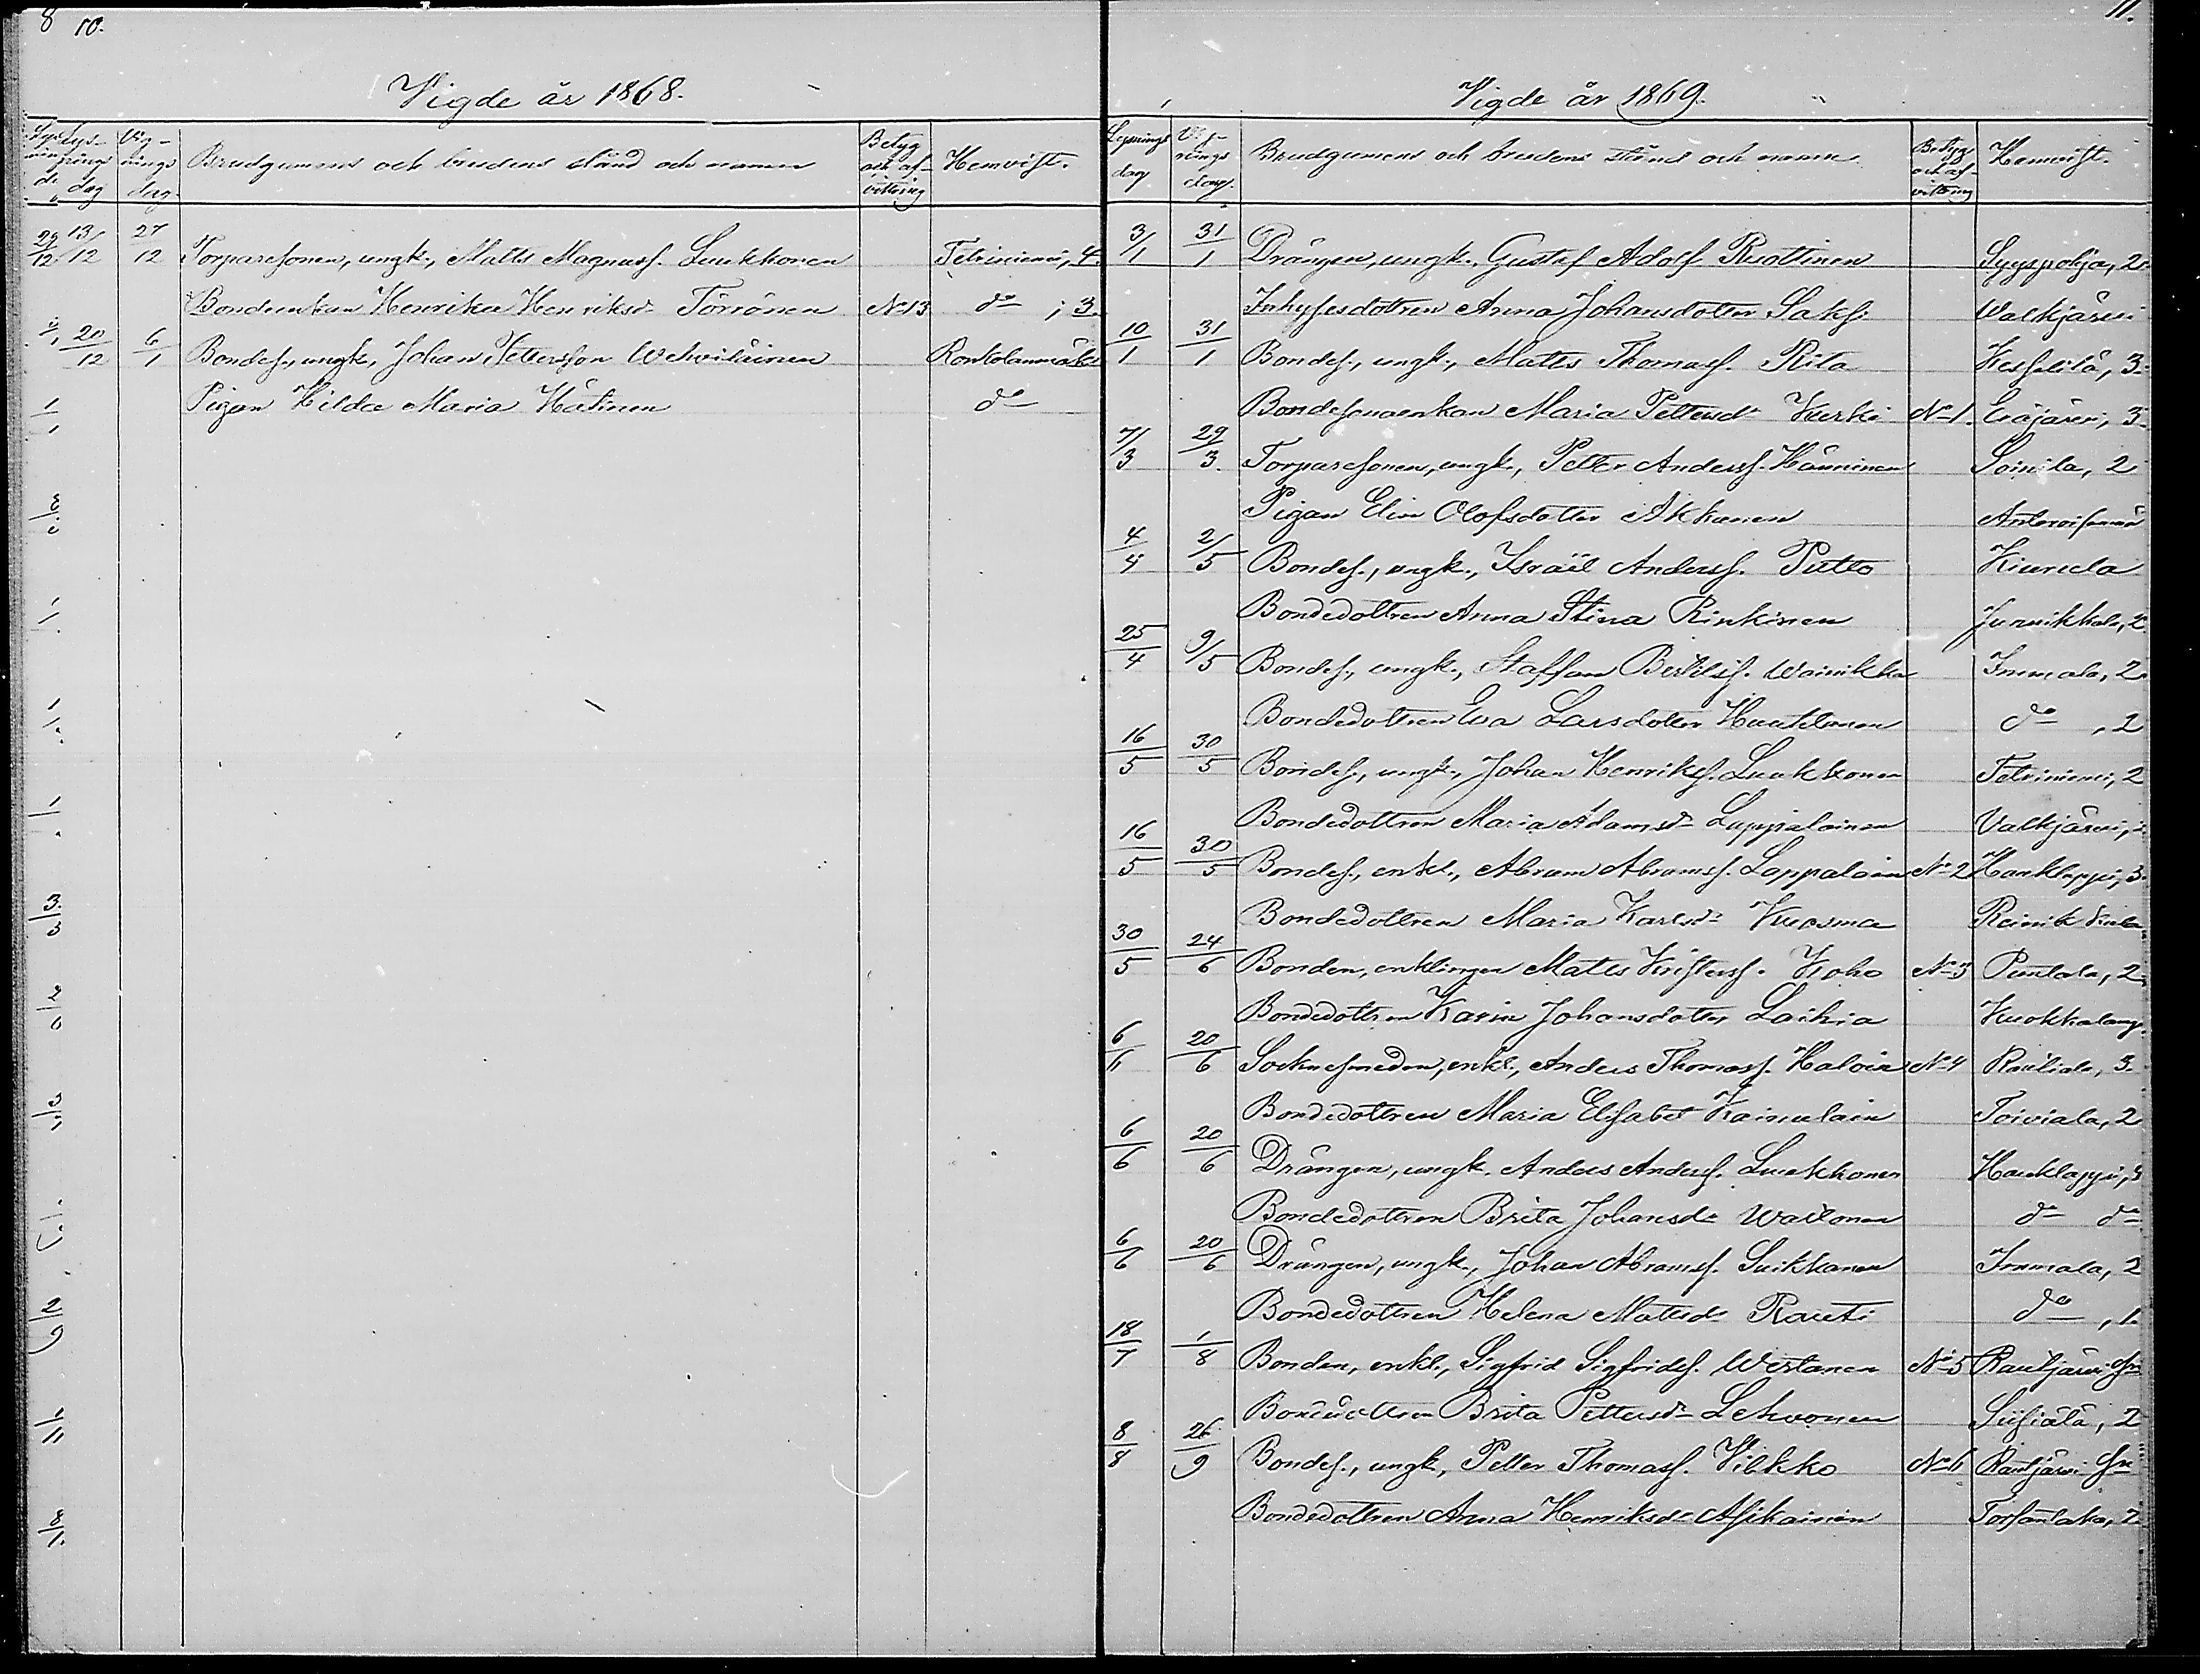 8 10.
Vigde år 1868.
Lysnings dag Vignings dag Brudgummens och brudens stånd och namn Betyg och afvittring Hemvist.
13/12 27/12 Torparesonen, ungk., Matts Magnuss. Luukkonen Telviniemi, 4.
Bondeenkan Henrika Henriksd:r Törrönen No 13 d:o ; 3.
20/12 6/1 Bondes., ungk., Johan Pettersson Wehviläinen Konkolanmäki
Pigan Hilda Maria Hätinen d:o
11.
Vigde år 1869.
Lysnings dag Vignings dag. Brudgumens och brudens stånd och namn. Betyg och afvittring Hemvist.
3/1 31/1 Drängen, ungk., Gustaf Adolf Ruottinen Syyspohja, 2.
Inhysesdottren Anna Johansdotter Saks. Walkjärvi
10/1 31/1 Bondes., ungk., Matts Thomass. Rita Kesselilä, 3.
Bondesonaenkan Maria Pettersd:r Kurki No 1. Eräjärvi, 3.
7/3 29/3. Torparesonen, ungk., Petter Anderss. Hänninen Soinila, 2
Pigan Elin Olofsdotter Akkanen
4/4 2/5 Bondes., ungk., Israël Anderss. Putto Kiurula
Bondedottren Anna Stina Rinkinen Junnikkala, 2.
25/4 9/5 Bondes., ungk., Staffan Bertilss. Wainikka Immala, 2.
Bondedottren Eva Larsdotter Huuhtanen d:o , 2
16/5 30/5 Bondes., ungk., Johan Henrikss. Luukkonen Telviniemi, 2
Bondedottren Maria Adamsd:r Lappalainen Valkjärvi,
16/5 30/5 Bondes., enkl., Abram Abramss. Lappalain No 2 Hauklappi, 3.
Bondedottren Maria Karlsd:r Kuosma Reinikkala
30/5 24/6 Bonden, enklingen Matts Kristerss. Koho No 3 Puntala, 2.
Bondedottren Karin Johansdotter Laihia Kuokkalamp.
6/6 20/6 Socknesmeden, enkl., Anders Thomass. Haloin No 4 Rauliala, 3.
Bondedottren Maria Elisabet Kainulain Toiviala, 2
6/6 20/6 Drängen, ungk. Anders Anderss. Luukkonen Hauklappi, 3
Bondedottren Brita Johansd:r Wailonen d:o d:o
6/6 20/6 Drängen, ungk., Johan Abramss. Suikkanen Immala, 2
Bondedottren Helena Mattsd:r Rauti d:o , 1.
18/7 1/8 Bonden, enkl., Sigfrid Sigfridss. Westanen No 5 Rautjärvi sn
Bondedottren Brita Pettersd:r Lehvonen Siisiälä, 2
8/8 26/9 Bondes., ungk., Petter Thomass. Vilkko No 6 Rautjärvi sn
Bondedottren Anna Henriksd:r Asikainen Torsantaka, 2.